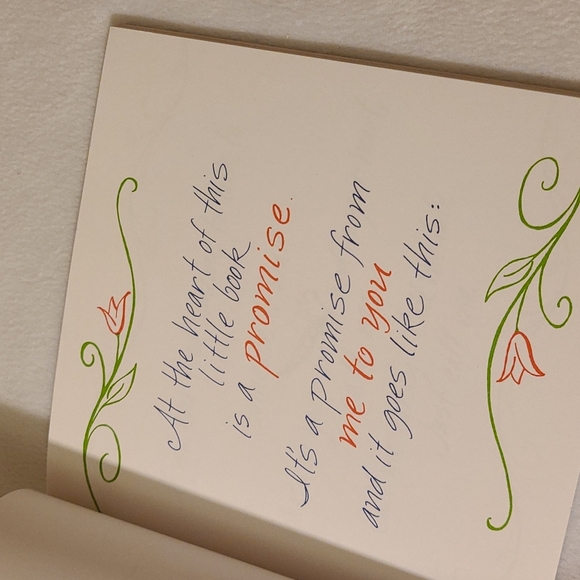 At the heart of this
little book
is a promise.
It's a promise from
me to you
and it goes like this: